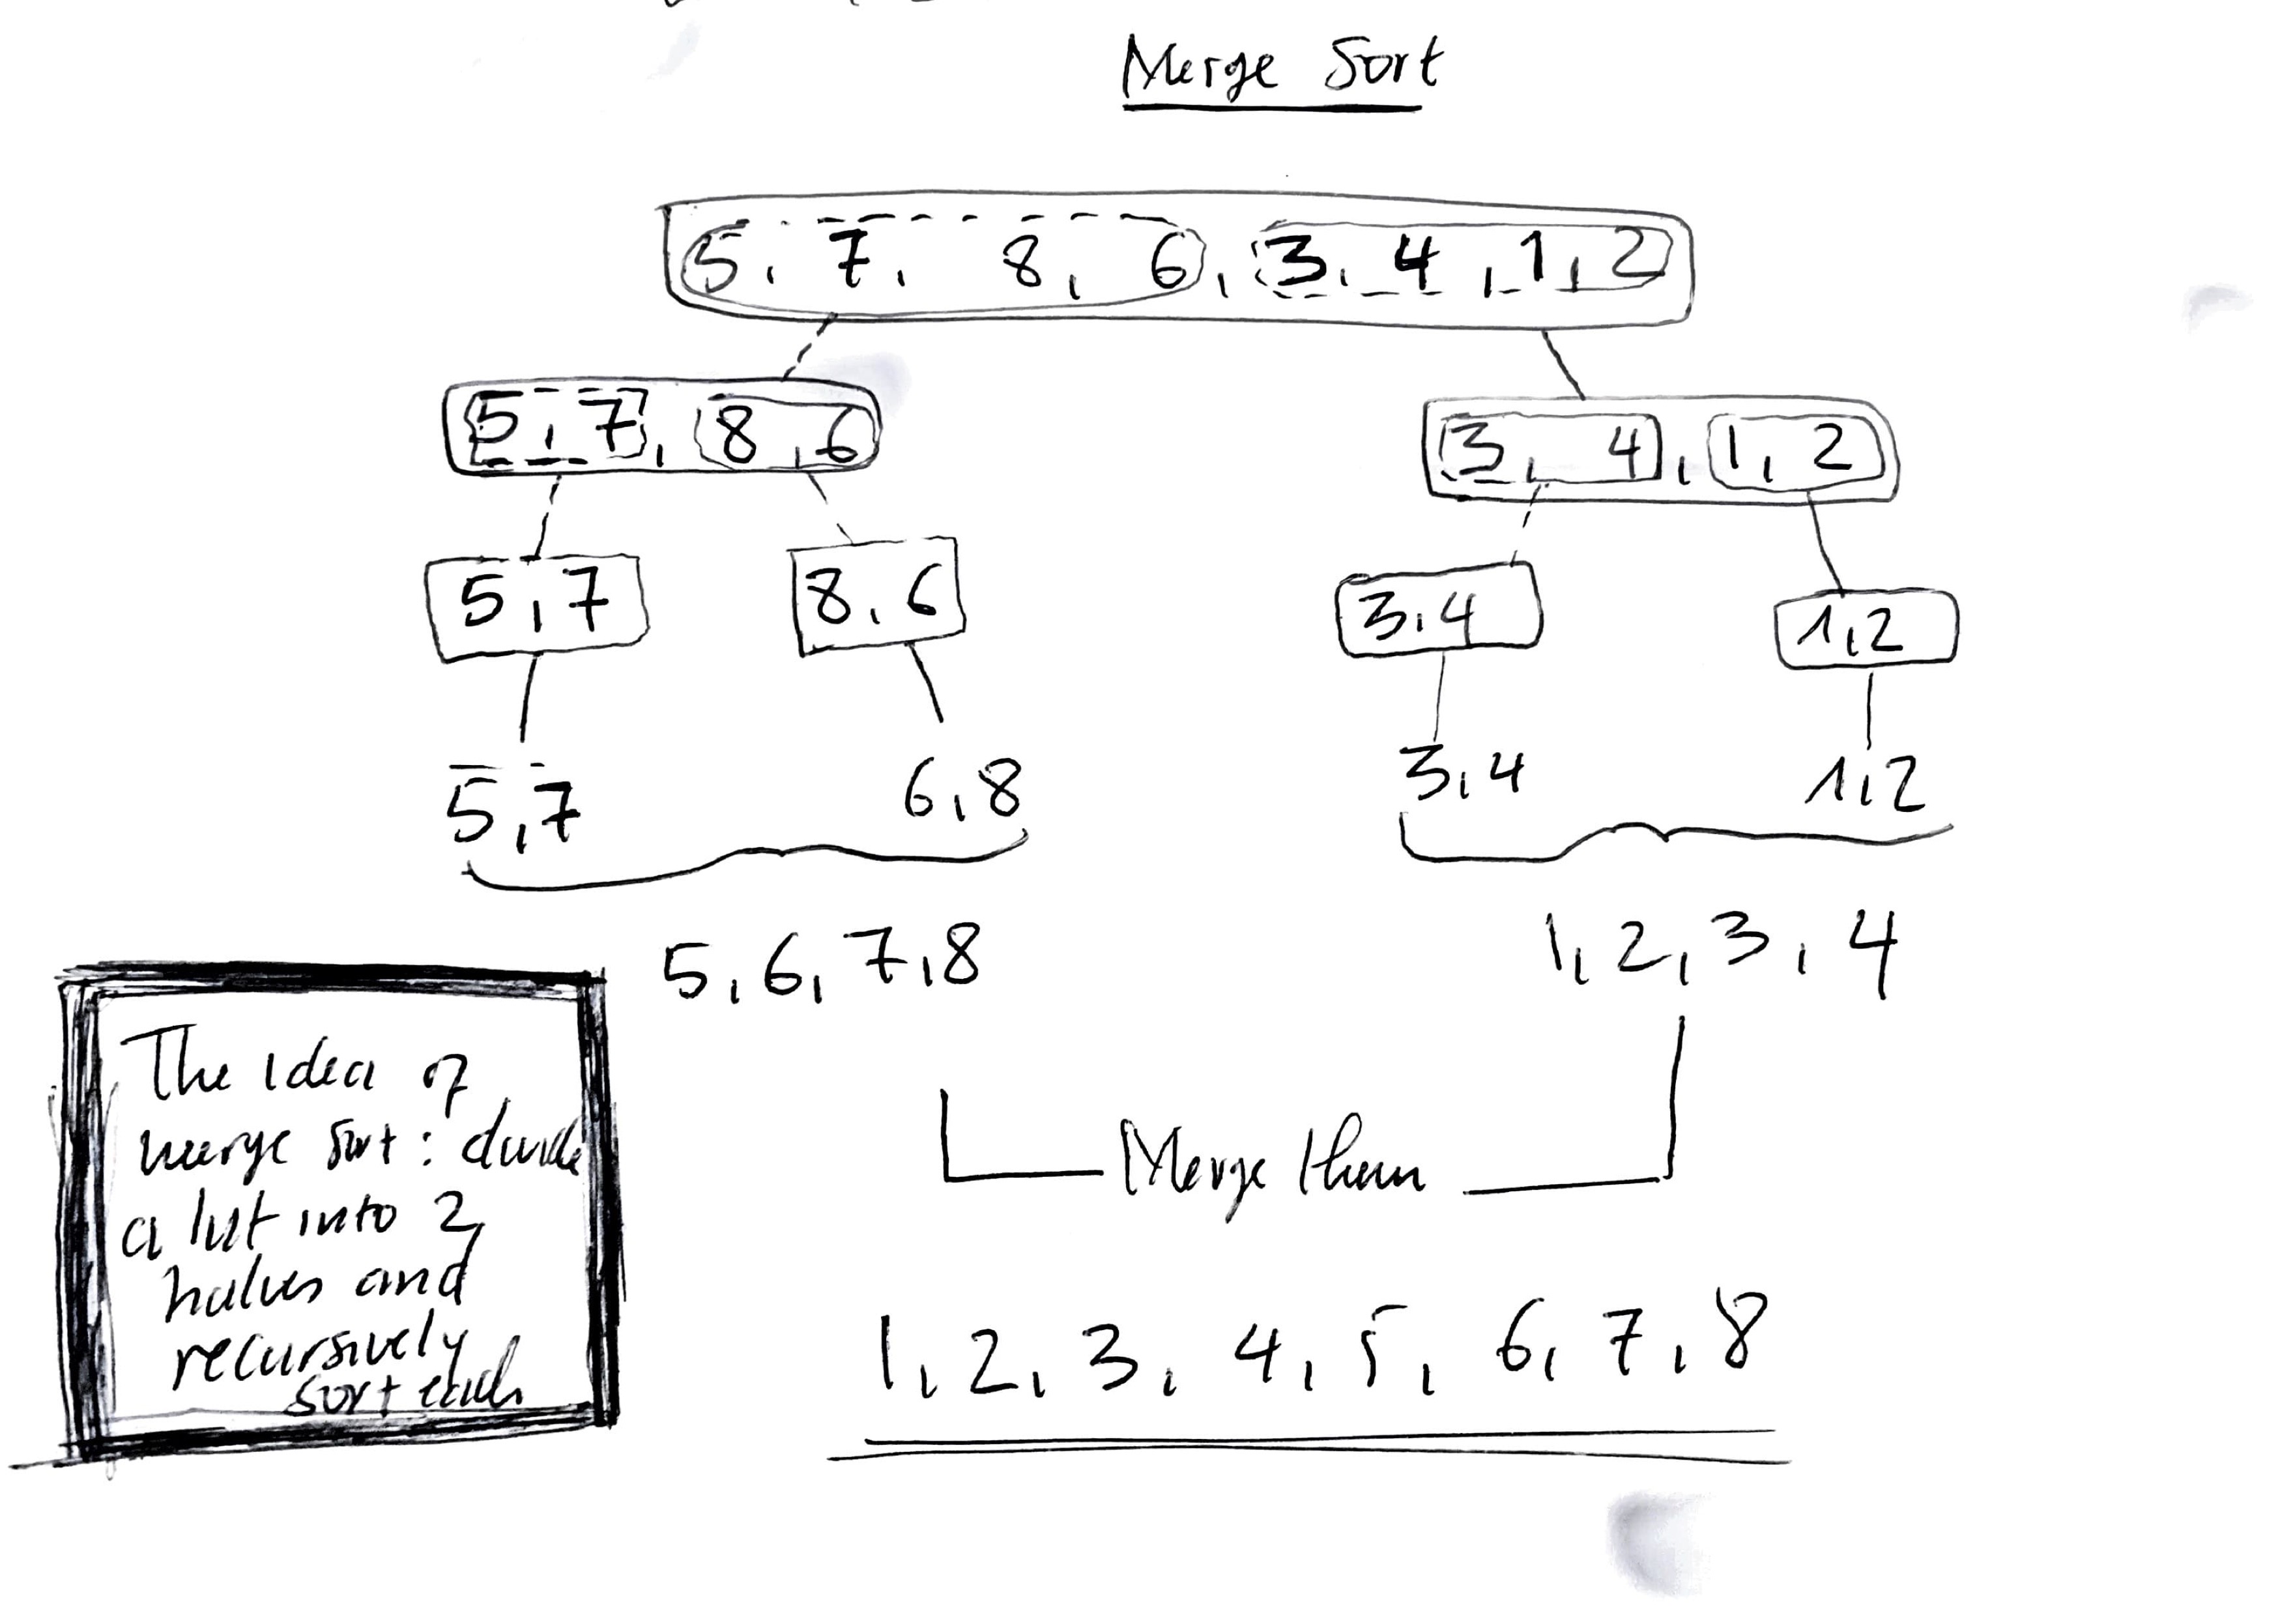 Merge Sort
5, 7, 8, 6, 3, 4, 1, 2
5, 7, 8, 6
3, 4, 1, 2
5, 7
8, 6
3, 4
1, 2
5, 7
6, 8
3, 4
1, 2
5, 6, 7, 8
1, 2, 3, 4
Merge them
1, 2, 3, 4, 5, 6, 7, 8
The idea of
merge sort: divide
a list into 2
halves and
recursively
sort each